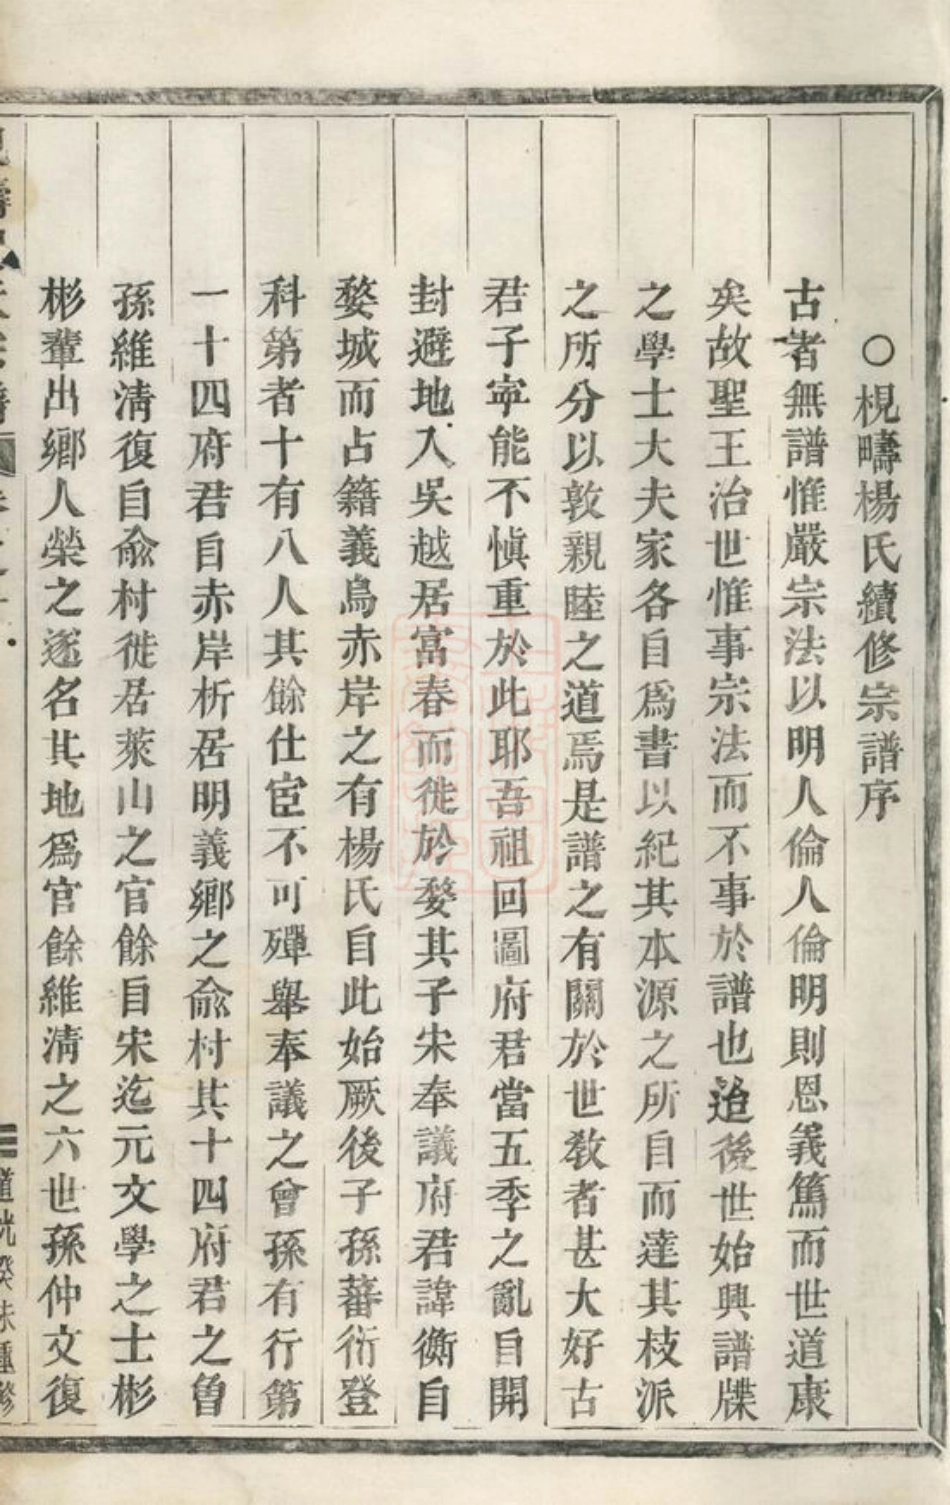 ○梘疇楊氏續修宗譜序
古者無譜惟嚴宗法以明人倫人倫明則恩義篤而世道康
矣故聖王治世惟事宗法而不事於譜也迨後世始興譜牒
之學士大夫家各自爲書以紀其本源之所自而達其枝派
之所分以敦親睦之道焉是譜之有關於世敎者甚大好古
君子寜能不愼重於此耶吾祖回圖府君當五季之亂自開
封避地入吳越居富春而徙於婺其子宋奉議府君諱衡自
婺城而占籍義烏赤岸之有楊氏自此始厥後子孫蕃衍登
科第者十有八人其餘仕宦不可殫舉奉議之曾孫有行第
一十四府君自赤岸析居明義鄉之兪村其十四府君之曾
孫維淸復自兪村徙居萊山之官餘自宋迄元文學之士彬
彬輩出鄉人榮之遂名其地爲官餘維淸之六世孫仲文復
道光癸未重修